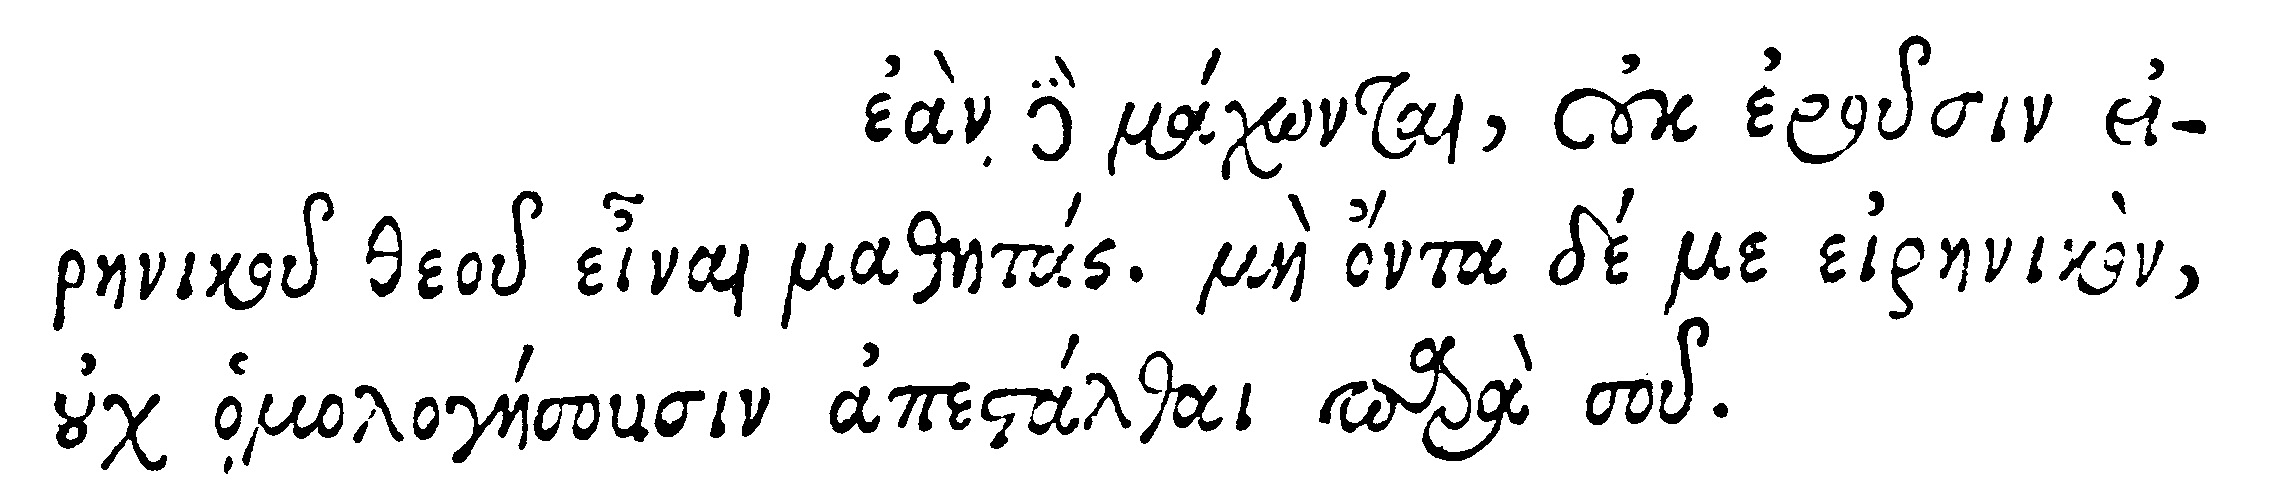 ἐὰν δὲ μάχωνται, οὐκ ἐροῦσιν εἰ-
ρηνικοῦ θεοῦ εἶναι μαθητάς. μὴ ὄντα δέ με εἰρηνικὸν,
οὐχ ὁμολογήσουσιν ἀπεστάλθαι παρὰ σοῦ.